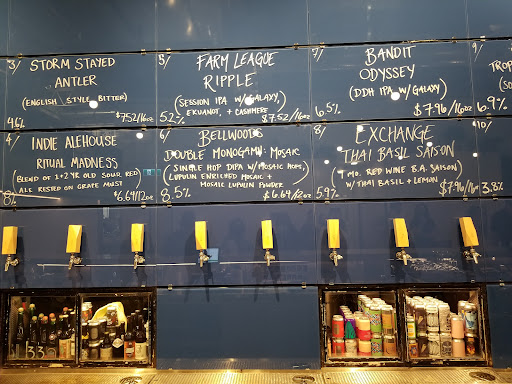 3/ STORM STAYED
ANTLER
(ENGLISH STYLE BITTER)
4.6% $7.52/16oz
5/ FARM LEAGUE
RIPPLE
(SESSION IPA W/ GALAXY,
EKUANOT, + CASHMERE)
5.2% $7.52/16oz
7/ BANDIT
ODYSSEY
(DDH IPA W/ GALAXY)
6.5% $7.96/16oz
9/
6.9%
4/ INDIE ALEHOUSE
RITUAL MADNESS
(BLEND OF 1+2 YR OLD SOUR RED
ALE RESTED ON GRAPE MUST
8% $6.64/12oz
6/ BELLWOODS
DOUBLE MONOGAMY: MOSAIC
(SINGLE HOP DIPA W/ MOSAIC HOPS
LUPULIN ENRICHED MOSAIC +
MOSAIC LUPULIN POWDER
8.5% $6.64/12oz
8/ EXCHANGE
THAI BASIL SAISON
(7 MO. RED WINE B.A. SAISON
W/ THAI BASIL + LEMON)
5.9% $7.96/16oz
10/
3.8%